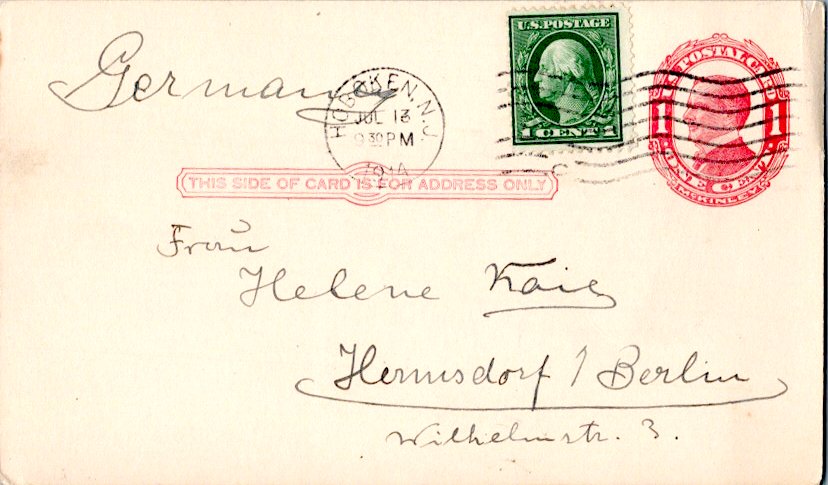 Germany
HOBOKEN, N.J.
JUL 13
9 30 PM
1914
U.S. POSTAGE
1 CENT 1
U.S. POSTAL CARD
1 1
ONE CENT
McKINLEY
THIS SIDE OF CARD IS FOR ADDRESS ONLY
Frau
Helene
Hermsdorf / Berlin
Wilhelmstr. 3.